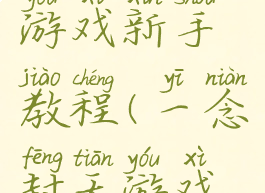 yóu xì xīn shǒu
游戏新手
jiào chéng yī niàn
教程(一念
fēng tiān yóu xì
封天游戏